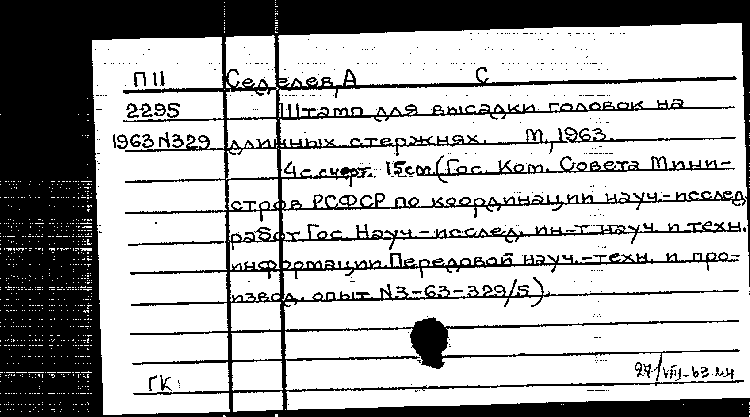 П11 Седелев, А С
2295 Штамп для высадки головок на
1963 N329 длинных стержнях. М., 1963.
4 с. с черт. 15 см. (Гос. Ком. Совета Мини-
стров РСФСР по координации науч.-исслед.
работ Гос. Науч.-исслед. ин-т науч. и техн.
информации. Передовой науч.-техн. и про-
извод. опыт N3-63-329/5).
ГК 27/VIII-63